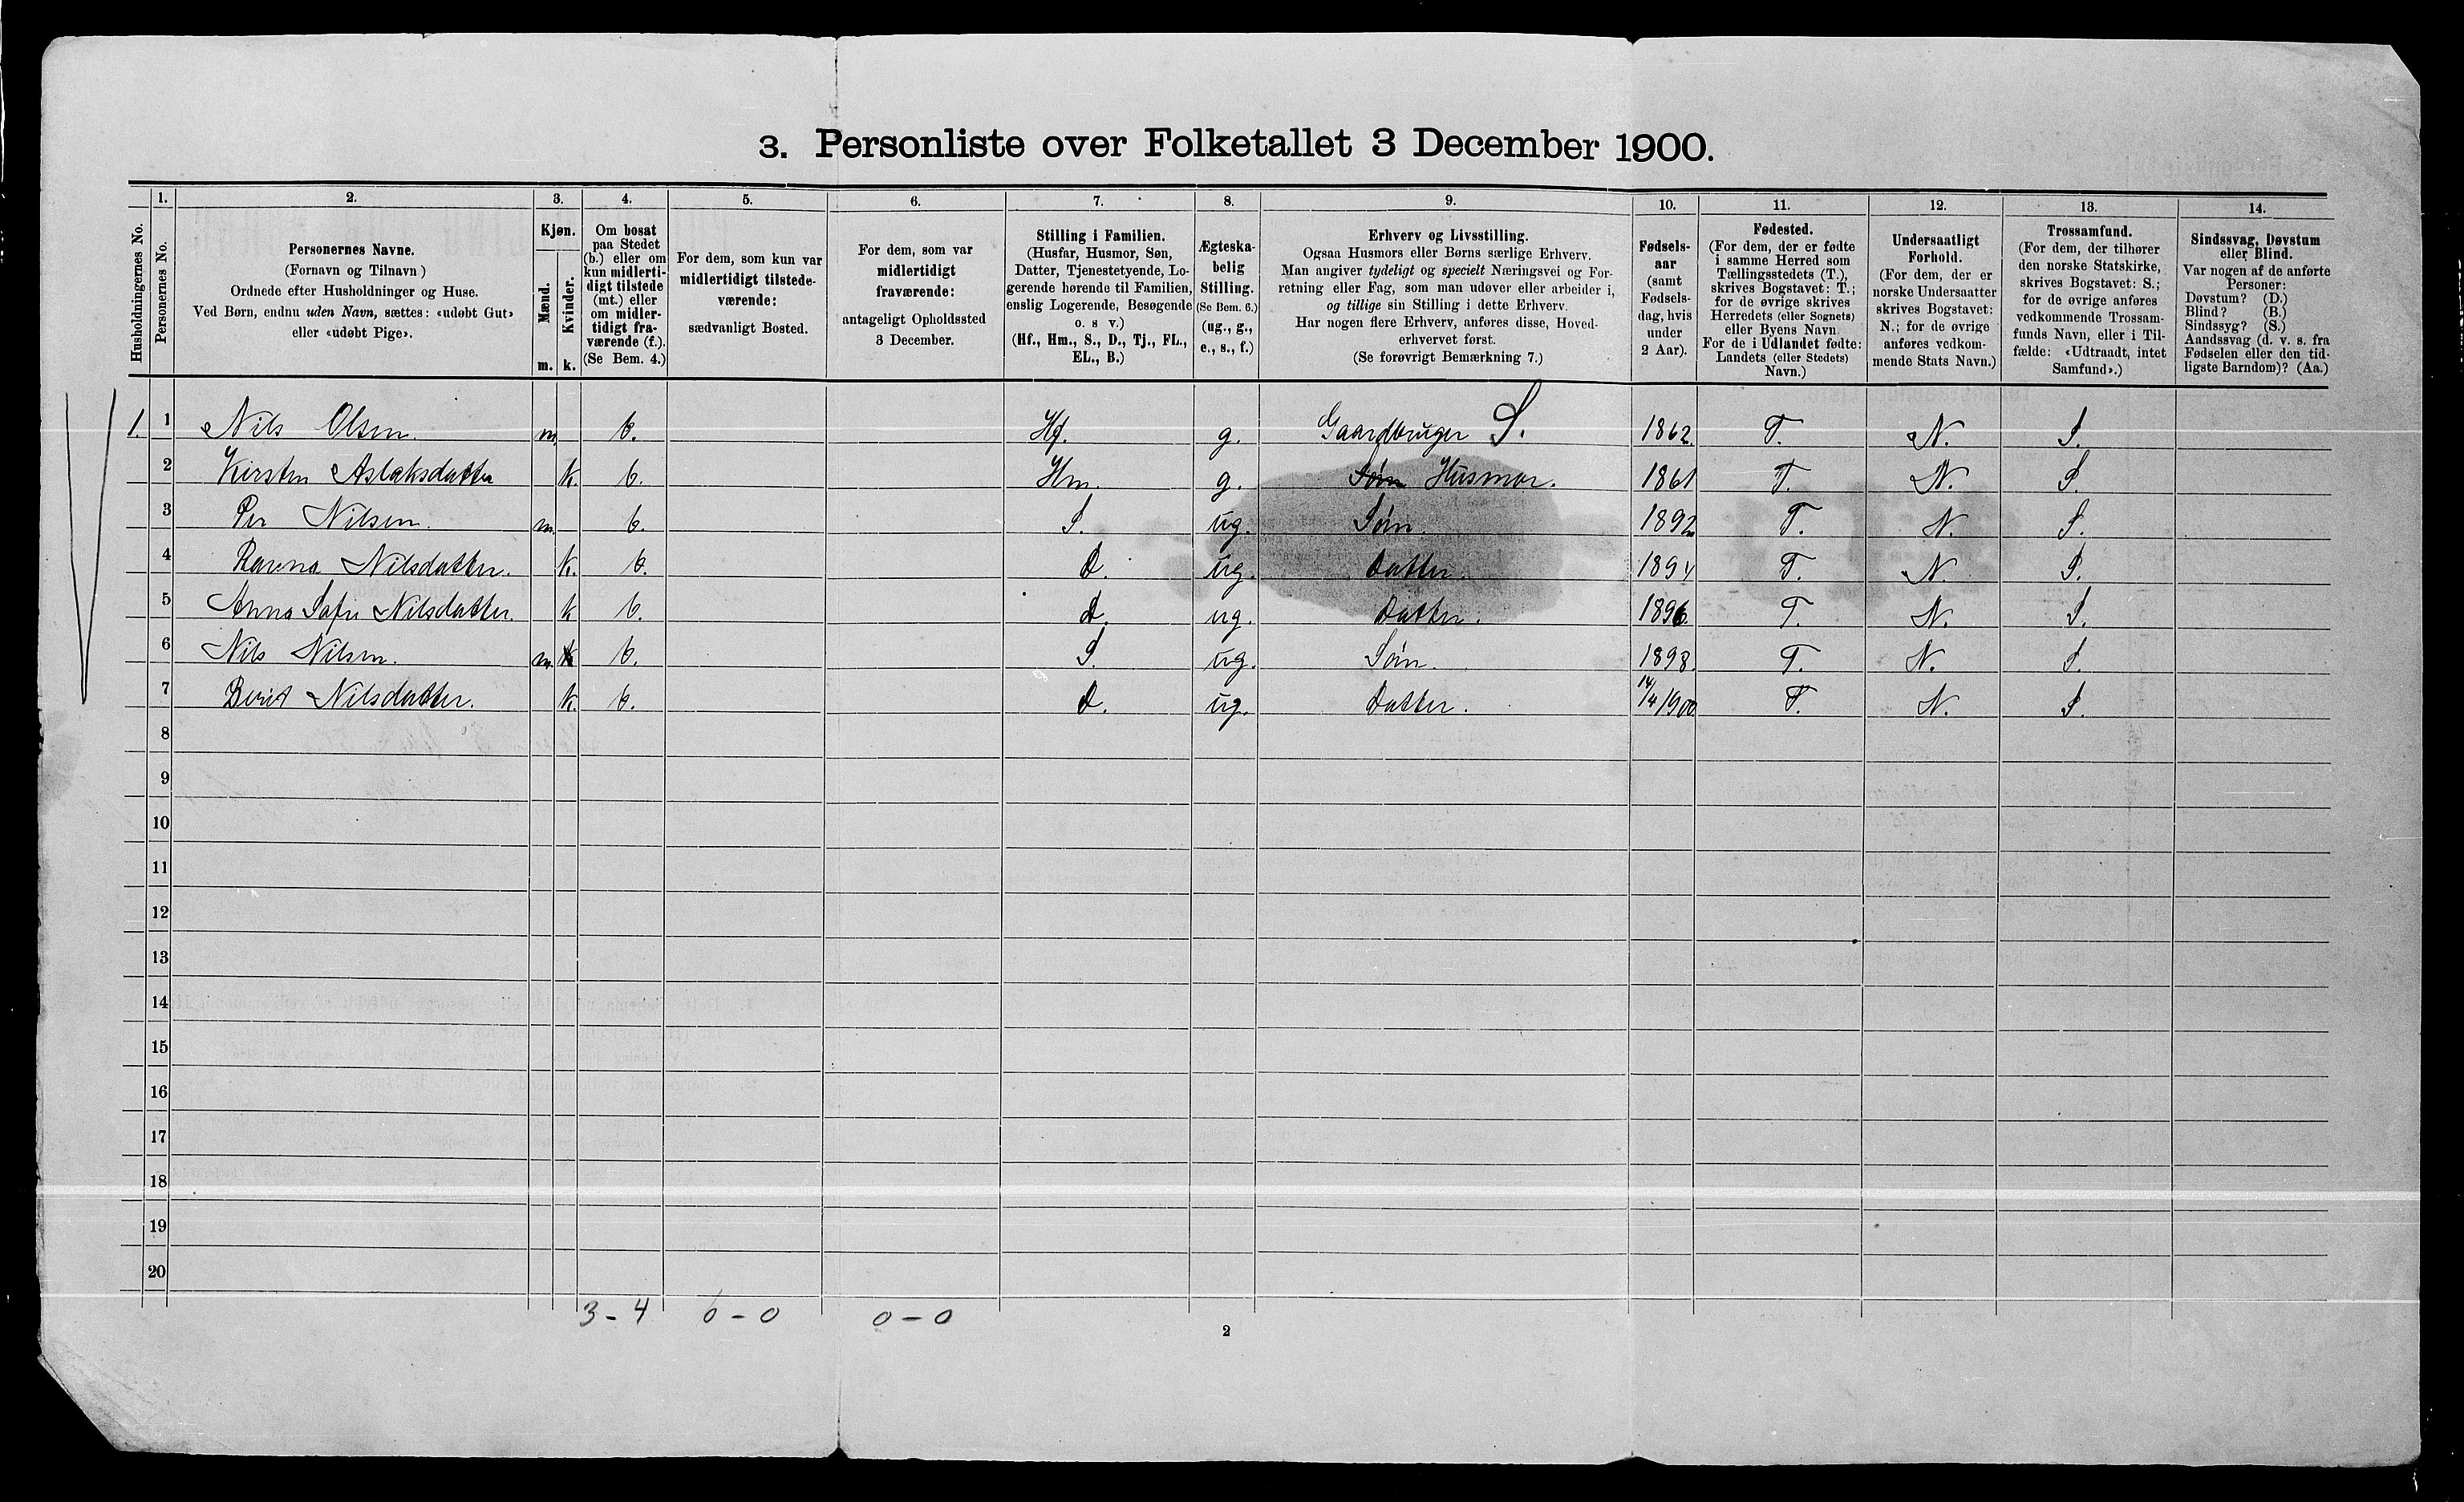 3. Personliste over Folketallet 3 December 1900.
1. 2. 3. 4. 5. 6. 7. 8. 9. 10. 11. 12. 13. 14.
Husholdningernes No.
Personernes No.
Personernes Navne.
(Fornavn og Tilnavn)
Ordnede efter Husholdninger og Huse.
Ved Børn, endnu uden Navn, sættes: «udøbt Gut»
eller «udøbt Pige».
Kjøn.
Mænd.
Kvinder.
m. k.
Om bosat
paa Stedet
(b.) eller om
kun midlerti-
digt tilstede
(mt.) eller
om midler-
tidigt fra-
værende (f.).
(Se Bem. 4.)
For dem, som kun var
midlertidigt tilstede-
værende:
sædvanligt Bosted.
For dem, som var
midlertidigt
fraværende:
antageligt Opholdssted
3 December.
Stilling i Familien.
(Husfar, Husmor, Søn,
Datter, Tjenestetyende, Lo-
gerende hørende til Familien,
enslig Logerende, Besøgende
o. s v.)
(Hf., Hm., S., D., Tj., FL.,
EL., B.)
Ægteska-
belig
Stilling.
(Se Bem. 6.)
(ug., g.,
e., s., f.)
Erhverv og Livsstilling.
Ogsaa Husmors eller Børns særlige Erhverv.
Man angiver tydeligt og specielt Næringsvei og For-
retning eller Fag, som man udøver eller arbeider i,
og tillige sin Stilling i dette Erhverv.
Har nogen flere Erhverv, anføres disse, Hoved-
erhvervet først.
(Se forøvrigt Bemærkning 7.)
Fødsels-
aar
(samt
Fødsels-
dag, hvis
under
2 Aar).
Fødested.
(For dem, der er fødte
i samme Herred som
Tællingsstedets (T.),
skrives Bogstavet: T.;
for de øvrige skrives
Herredets (eller Sognets)
eller Byens Navn
For de i Udlandet fødte:
Landets (eller Stedets)
Navn.)
Undersaatligt
Forhold.
(For dem, der er
norske Undersaatter
skrives Bogstavet:
N.; for de øvrige
anføres vedkom-
mende Stats Navn.)
Trossamfund.
(For dem, der tilhører
den norske Statskirke,
skrives Bogstavet: S.;
for de øvrige anføres
vedkommende Trossam-
funds Navn, eller i Til-
fælde: «Udtraadt, intet
Samfund».)
Sindssvag, Døvstum
eller Blind.
Var nogen af de anførte
Personer:
Døvstum? (D.)
Blind? (B.)
Sindssyg? (S.)
Aandssvag (d. v. s. fra
Fødselen eller den tid-
ligste Barndom)? (Aa.)
1. 1 Nils Olsen. m. b. Hf. g. Gaardbruger S. 1862. T. N. S.
2 Kirsten Aslaksdatter k. b. Hm. g. Søn Husmor. 1861 T. N. S.
3 Per Nilsen. m. b. S. ug. Søn. 1892 T. N. S.
4 Ravna Nilsdatter. k. b. D. ug. Datter. 1894 T. N. S.
5 Anna Sofie Nilsdatter. k b. D. ug. Datter. 1896. T. N. S.
6 Nils Nilsen. m. k b. S. ug. Søn. 1898. T. N. S.
7 Berit Nilsdatter. k. b. D. ug. Datter. 14/4 1900 T. N. S.
8
9
10
11
12
13
14
15
16
17
18
19
20
3 - 4 0 - 0 0 - 0
2